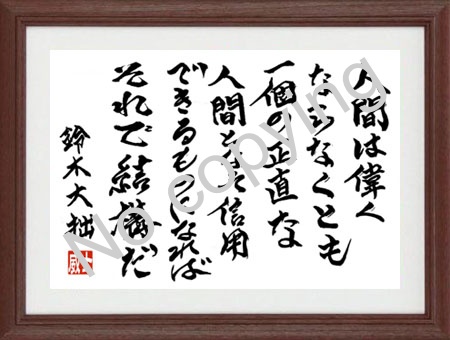 人間は偉く
ならなくとも
一個の正直な
人間となって信用
できるものになれば
それで結構だ
鈴木大拙
No copying